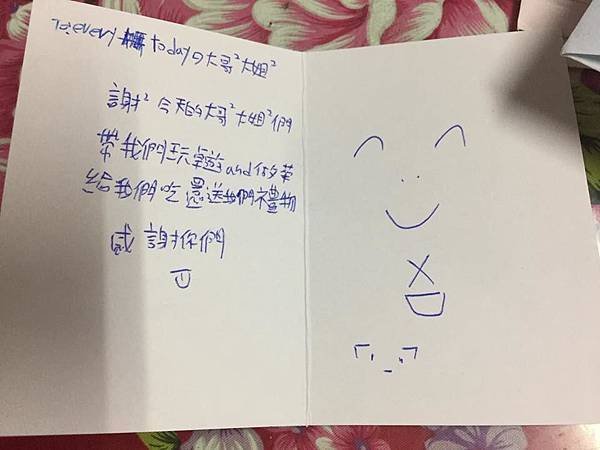 To: every today的大哥²大姐²
謝² 今天的大哥²大姐²們
帶我們玩桌遊and做菜
給我們吃 還送我們禮物
感謝你們